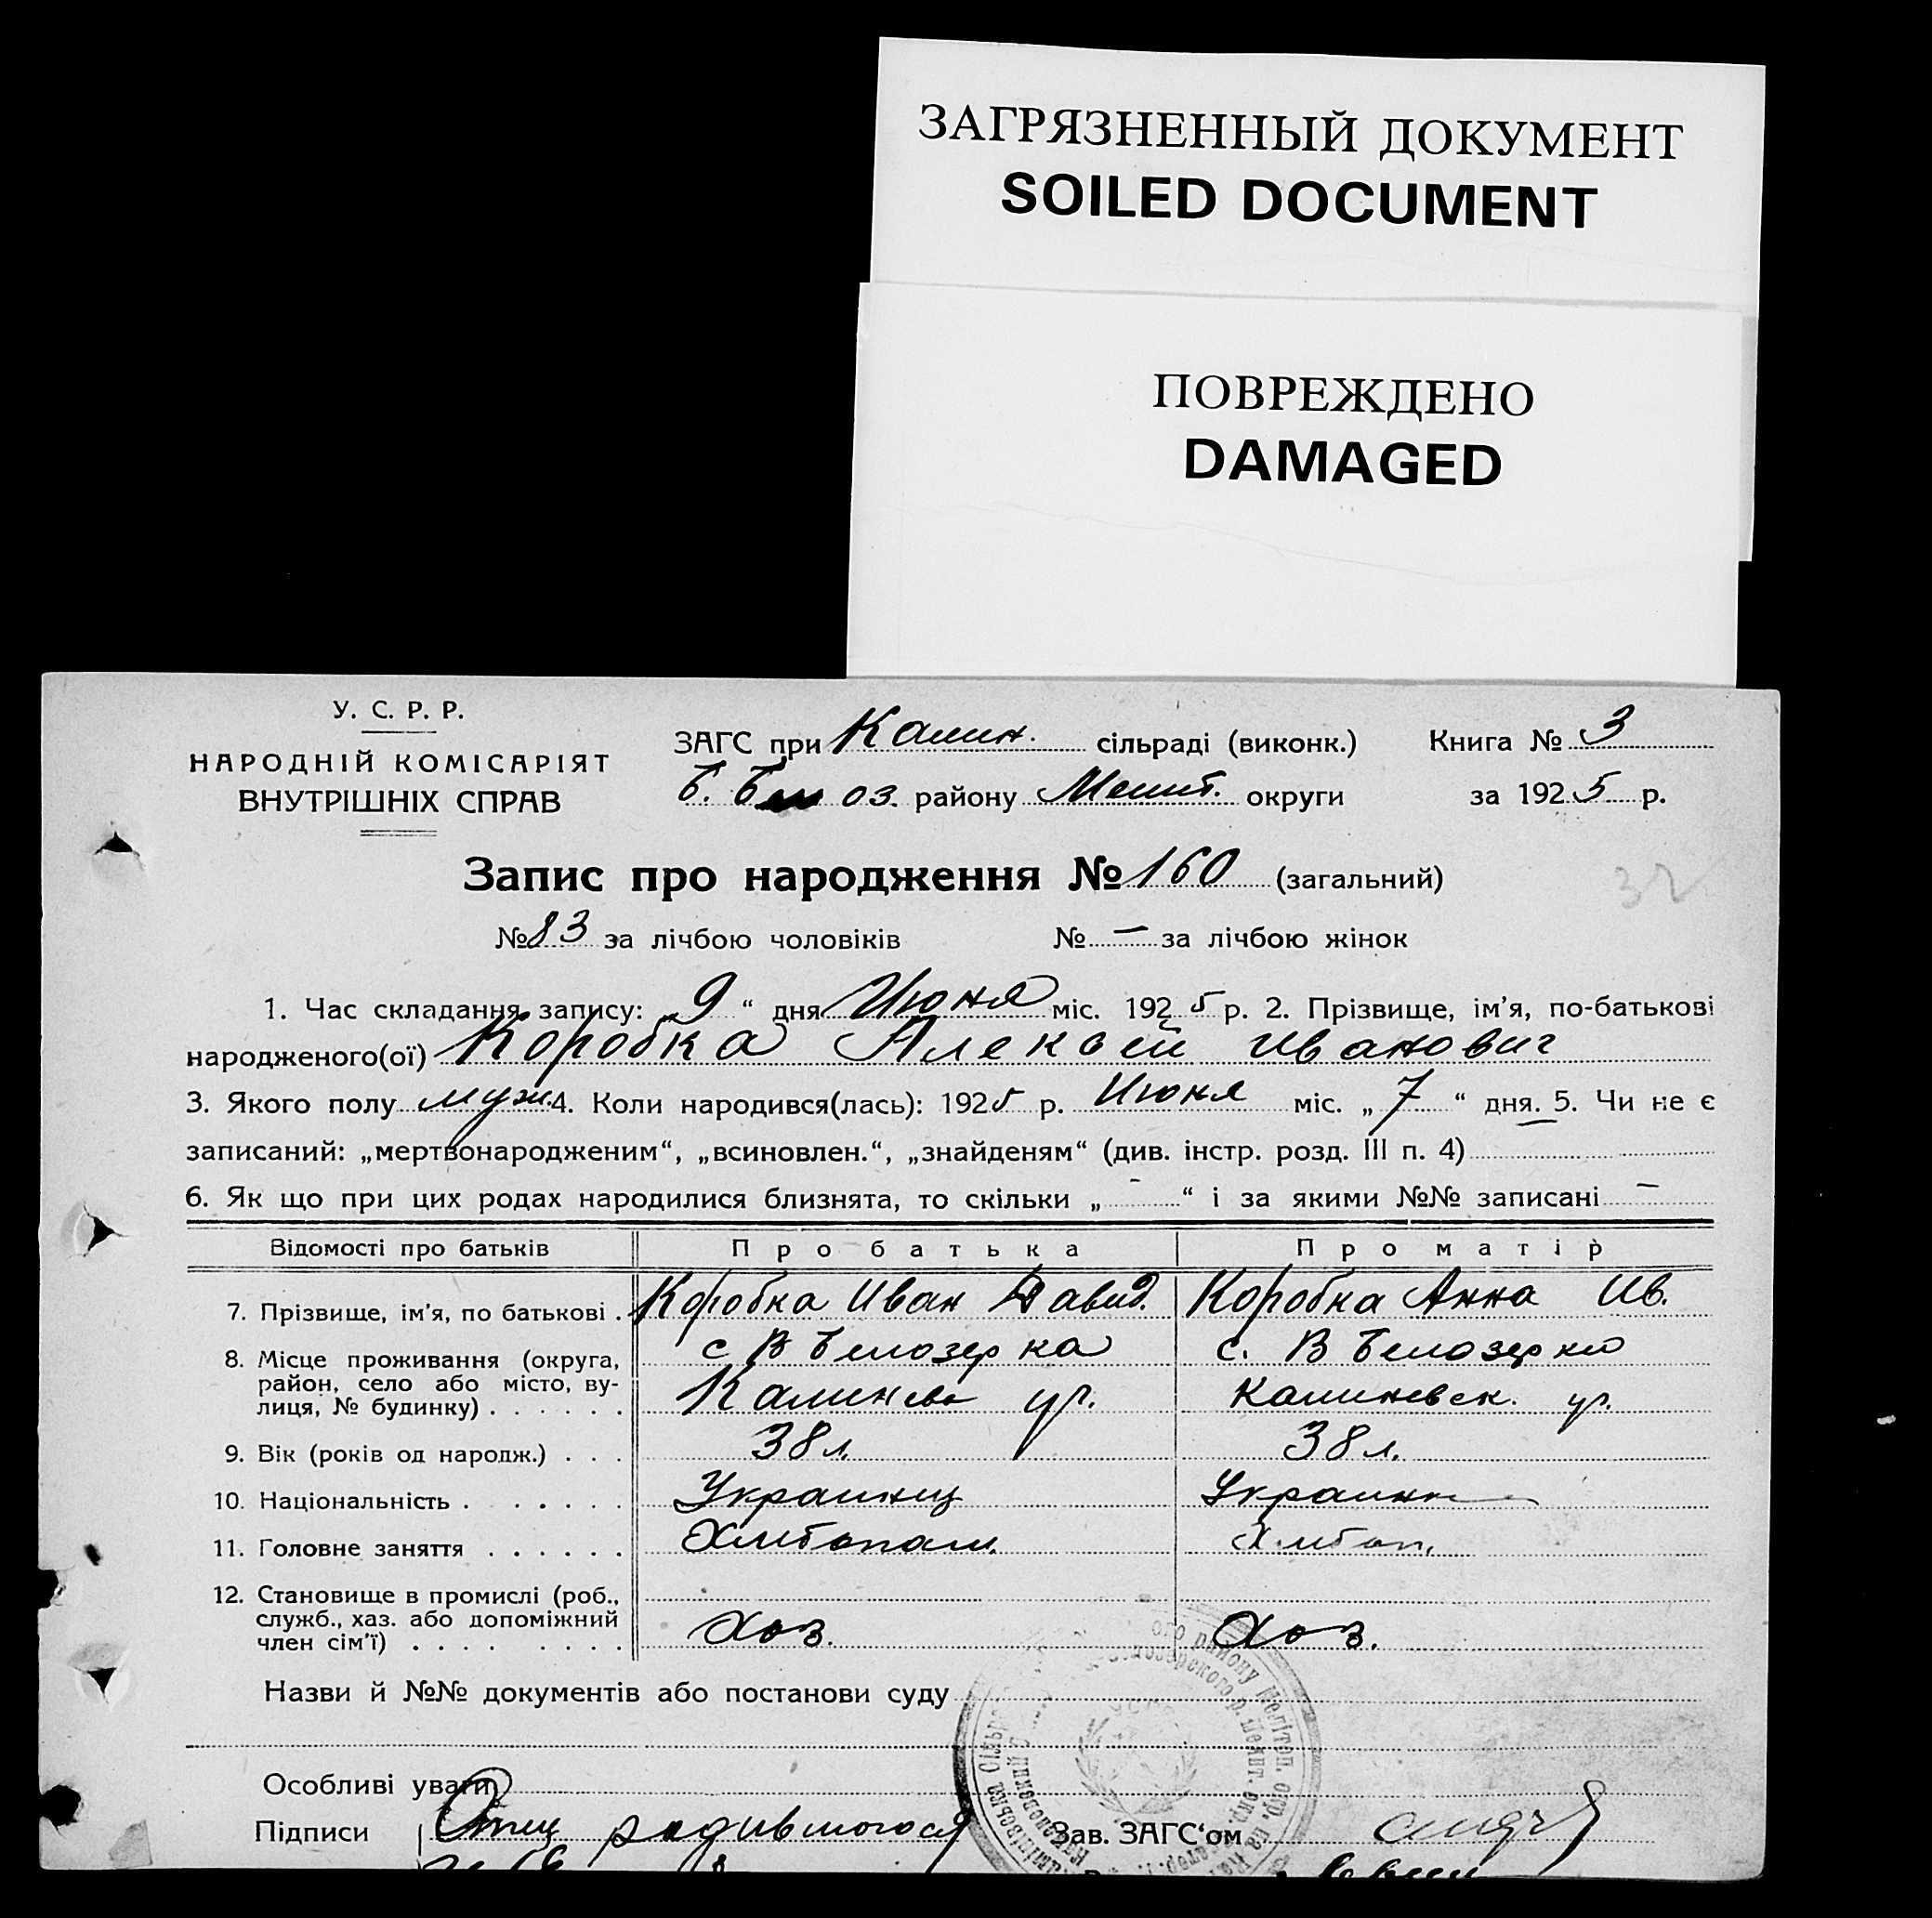 ЗАГРЯЗНЕННЫЙ ДОКУМЕНТ
SOILED DOCUMENT
ПОВРЕЖДЕНО
DAMAGED
У. С. Р. Р.
НАРОДНІЙ КОМІСАРІЯТ
ВНУТРІШНІХ СПРАВ
ЗАГС при Калин. сільраді (виконк.)
Книга № 3
оз. району Мелит. округи
за 1925 р.
Запис про народження № 160 (загальний)
32
№ 83 за лічбою чоловіків № — за лічбою жінок
1. Час складання запису: „9“ дня Июня міс. 1925 р. 2. Прізвище, ім'я, по-батькові
народженого(ої) Коробка Алексей Иванович
3. Якого полу муж. 4. Коли народився(лась): 1925 р. Июня міс. „7“ дня. 5. Чи не є
записаний: „мертвонародженим“, „всиновлен.“, „знайденям“ (див. інстр. розд. III п. 4)
6. Як що при цих родах народилися близнята, то скільки „-“ і за якими №№ записані —
Відомості про батьків Про батька Про матір
7. Прізвище, ім'я, по батькові . Коробка Иван Давид. Коробка Анна Ив.
8. Місце проживання (округа, с В Белозерка с. В Белозерка
район, село або місто, ву-
лиця, № будинку) . . . . . . ур. Калиновск. ур.
9. Вік (років од народж.) . . . 38 л. 38 л.
10. Національність . . . . . . Украинец Украинк
11. Головне заняття . . . . . . Хлебопаш. Хлебоп.
12. Становище в промислі (роб.,
служб., хаз. або допоміжний
член сім'ї) . . . . . . . . Хоз. Хоз.
Назви й №№ документів або постанови суду
Особливі уваги
Підписи Отец родившогося Зав. ЗАГС'ом